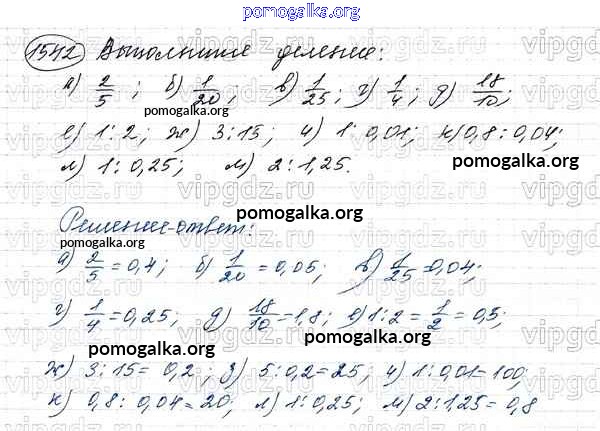 pomogalka.org
1542 Выполните деление:
а) 2/5 ; б) 1/20 ; в) 1/25 ; г) 1/4 ; д) 18/10 ;
pomogalka.org
е) 1 : 2 ; ж) 3 : 15 ; и) 1 : 0,01 ; к) 0,8 : 0,04 ;
pomogalka.org
л) 1 : 0,25 ; м) 2 : 1,25.
pomogalka.org
Решение-ответ:
pomogalka.org
а) 2/5 = 0,4 ; б) 1/20 = 0,05 ; в) 1/25 = 0,04 ;
г) 1/4 = 0,25 ; д) 18/10 = 1,8 ; е) 1 : 2 = 1/2 = 0,5 ;
pomogalka.org
pomogalka.org
ж) 3 : 15 = 0,2 ; з) 5 : 0,2 = 25 ; и) 1 : 0,01 = 100 ;
к) 0,8 : 0,04 = 20 ; л) 1 : 0,25 ; м) 2 : 1,25 = 0,8
vipgdz.ru